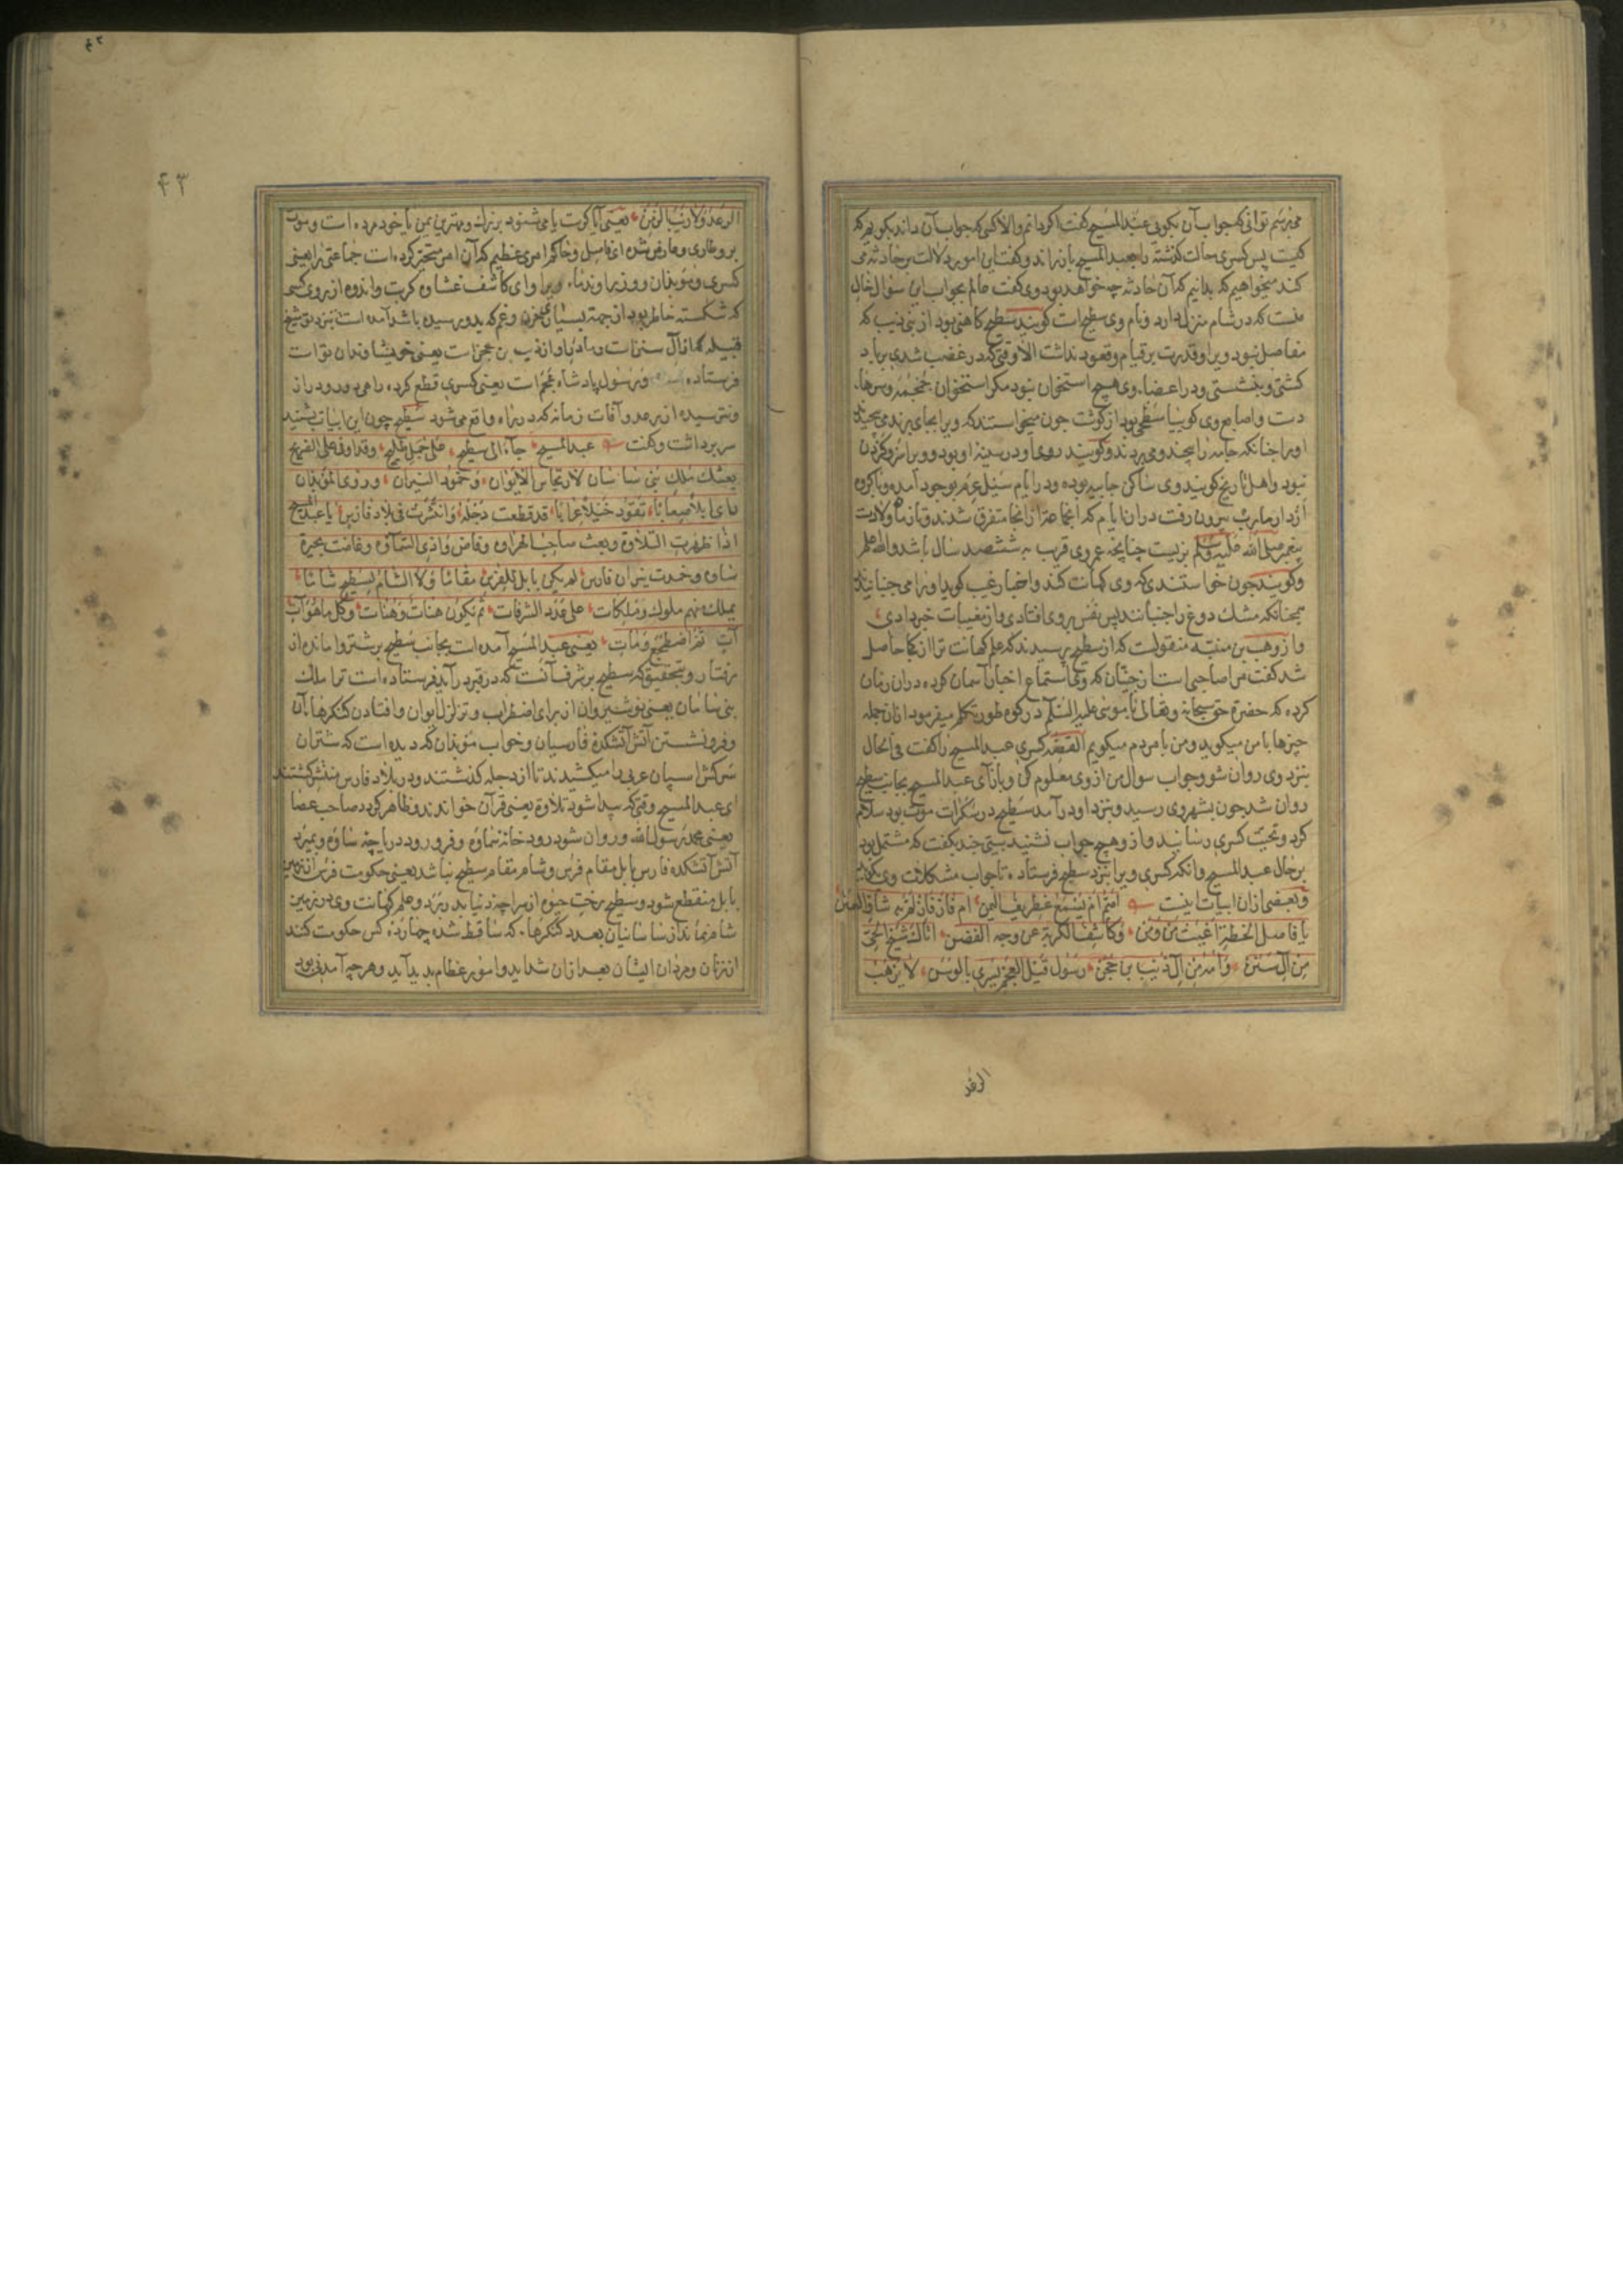 می‌پرسم توانی که جواب آن بکویی عبد المسیح کفت اکر دانم والا کسی که جواب آن داند بکویم که
کیست پس کسری حالت کذشته را بعبد المسیح باز راند و کفت این امور دلالت بر حادثه می
کند میخواهیم که بدانیم که آن حادثه چه خواهد بود وی کفت عالم بجواب این سؤال خال
منست که در شام منزل دارد و نام وی سطیح است کویند سطیح کاهنی بود از بنی ذیب که
مفاصل نبود ویرا و قدرت بر قیام و قعود نداشت الا وقتی که در غضب شدی بر باد
کشتی و بنشستی و در اعضاء وی هیچ استخوان نبود مکر استخوان جمجمه و سرهاء
دست و اصابع وی کوییا سطحی بود از کوشت چون میخواستند که ویرا بجای برند می پیچیدند
اورا چنانکه جامه را پیچند و می بردند و کویند روی او در سینه او بود و ویرا سر و کردن
نبود و اهل تاریخ کویند وی ساکن جابیه بوده و در ایام سیل عرم بوجود آمده و با کروه
ازد از مارب بیرون رفت در ان ایام که انجماعت از انجا متفرق شدند و تا زمان ولادت
پیغمبر صلی الله علیه وسلم بزیست چنانچه عمر وی قریب به ششصد سال باشد والله اعلم
و کویند چون خواستندی که وی کهانت کند و اخبار غیب کوید اورا می جنبانیدند
همچنانکه مشک دوغ را جنبانند پس نفس بر وی افتادی و از مغیبات خبر دادی
و از وهب بن منبه منقولست که از سطیح پرسیدند که علم کهانت ترا از کجا حاصل
شد کفت مرا صاحبی است از جنیان که وی استماع اخبار آسمان کرده در ان زمان
کرده که حضرت حق سبحانه و تعالی با موسی علیه السلام در کوه طور تکلم میفرمود از ان جمله
چیزها با من میکوید و من با مردم میکویم القصه کسری عبد المسیح را کفت فی الحال
بنزد وی روان شو و جواب سوال من از وی معلوم کن و باز آی عبد المسیح بجانب سطیح
روان شد چون بشهر وی رسید و بنزد او در آمد سطیح در سکرات موت بود سلام
کرد و تحیت کسری رسانید و از و هیچ جواب نشنید بیتی چند بکفت که مشتمل بود
بر حال عبد المسیح و انکه کسری ویرا بنزد سطیح فرستاده تا جواب مشکلات وی
و بعضی از ان ابیات اینست اصم ام یسمع غطریف الیمن ام فاز فازلم به شاو العنن
یا فاصل الخطة اعیت من ومن وکاشف الکربة عن وجه الغضن اتاک شیخ الحی
من آل سنن وامه من آل ذیب بن حجن رسول قیل العجم یسری بالوسن لا یرهب
الرعد
۴۳
الرعد ولا ریب الزمن یعنی آیا کرست یا می شنود بزرك و مهتر یمن یا خود مرده است و موت
بر و طاری و عارض شده ای فاصل و حاکم امری عظیم که آن امر متحیر کرده است جماعتی را یعنی
کسری و مؤبدان و وزیرا و ندماء ویرا و ای کاشف غشاوه کربت و اندوه از روی کسی
که شکسته خاطر بود از جهة بسیاری حزن و غم که بدو رسیده باشد آمده است بنزد تو شیخ
قبیله که از آل سنن است و مادر او از ذیب بن حجن است یعنی خویشاوندان تو است
فرستاده و رسول پادشاه عجم است یعنی کسری قطع کرده راهی دور و دراز
و نترسیده از رعد و آفات زمانه که در راه واقع می شود سطیح چون این ابیات بشنید
سر برداشت و کفت عبد المسیح جاء الی سطیح علی جمل طلیح وقد اوفی علی الضریح
بعثك ملك بنی ساسان لارتجاس الایوان وخمود النیران ورؤی المؤبدان
رای ابلا صعابا تقود خیلا عرابا قد قطعت دجله وانتشرت فی بلاد فارس یا عبد المسیح
اذا ظهرت التلاوة وبعث صاحب الهراوه وفاض وادی السماوه وغاضت بحیرة
ساوه وخمدت نیران فارس لم یکن بابل للفرس مقاما ولا الشام لسطیح شاما
یملك منهم ملوك وملکات علی عدد الشرفات ثم تکون هنات وهنات وکل ما هو آت
آت ثم اضطجع ومات یعنی عبد المسیح آمده است بجانب سطیح بر شتر وا مانده از
رفتار و بتحقیق که سطیح بر شرف آنست که در قبر در آید فرستاده است ترا ملك
بنی ساسان یعنی نوشیروان از برای اضطراب و تزلزل ایوان و افتادن کنکرهاء آن
و فرو نشستن آتش آتشکده فارسیان و خواب مؤبدان که دیده است که شتران
سرکش اسپان عربی را میکشیدند تا از دجله کذشتند و در بلاد فارس منتشر کشتند
ای عبد المسیح وقتی که پیدا شود تلاوة یعنی قرآن خوانند و ظاهر کردد صاحب عصا
یعنی محمد رسول الله و روان شود رود خانه سماوه و فرو رود دریاچه ساوه و بمیرد
آتش آتشکده فارس بابل مقام فرس و شام مقام سطیح نباشد یعنی حکومت فرس از زمین
بابل منقطع شود و سطیح رخت حیوة از سراچه دنیا بدر برد و علم کهانت وی در زمین
شام نماند از ساسانیان بعدد کنکرها که ساقط شده چهارده کس حکومت کند
از زنان و مردان ایشان بعد از ان شداید و امور عظام پدید آید و هر چه آمدنی بود